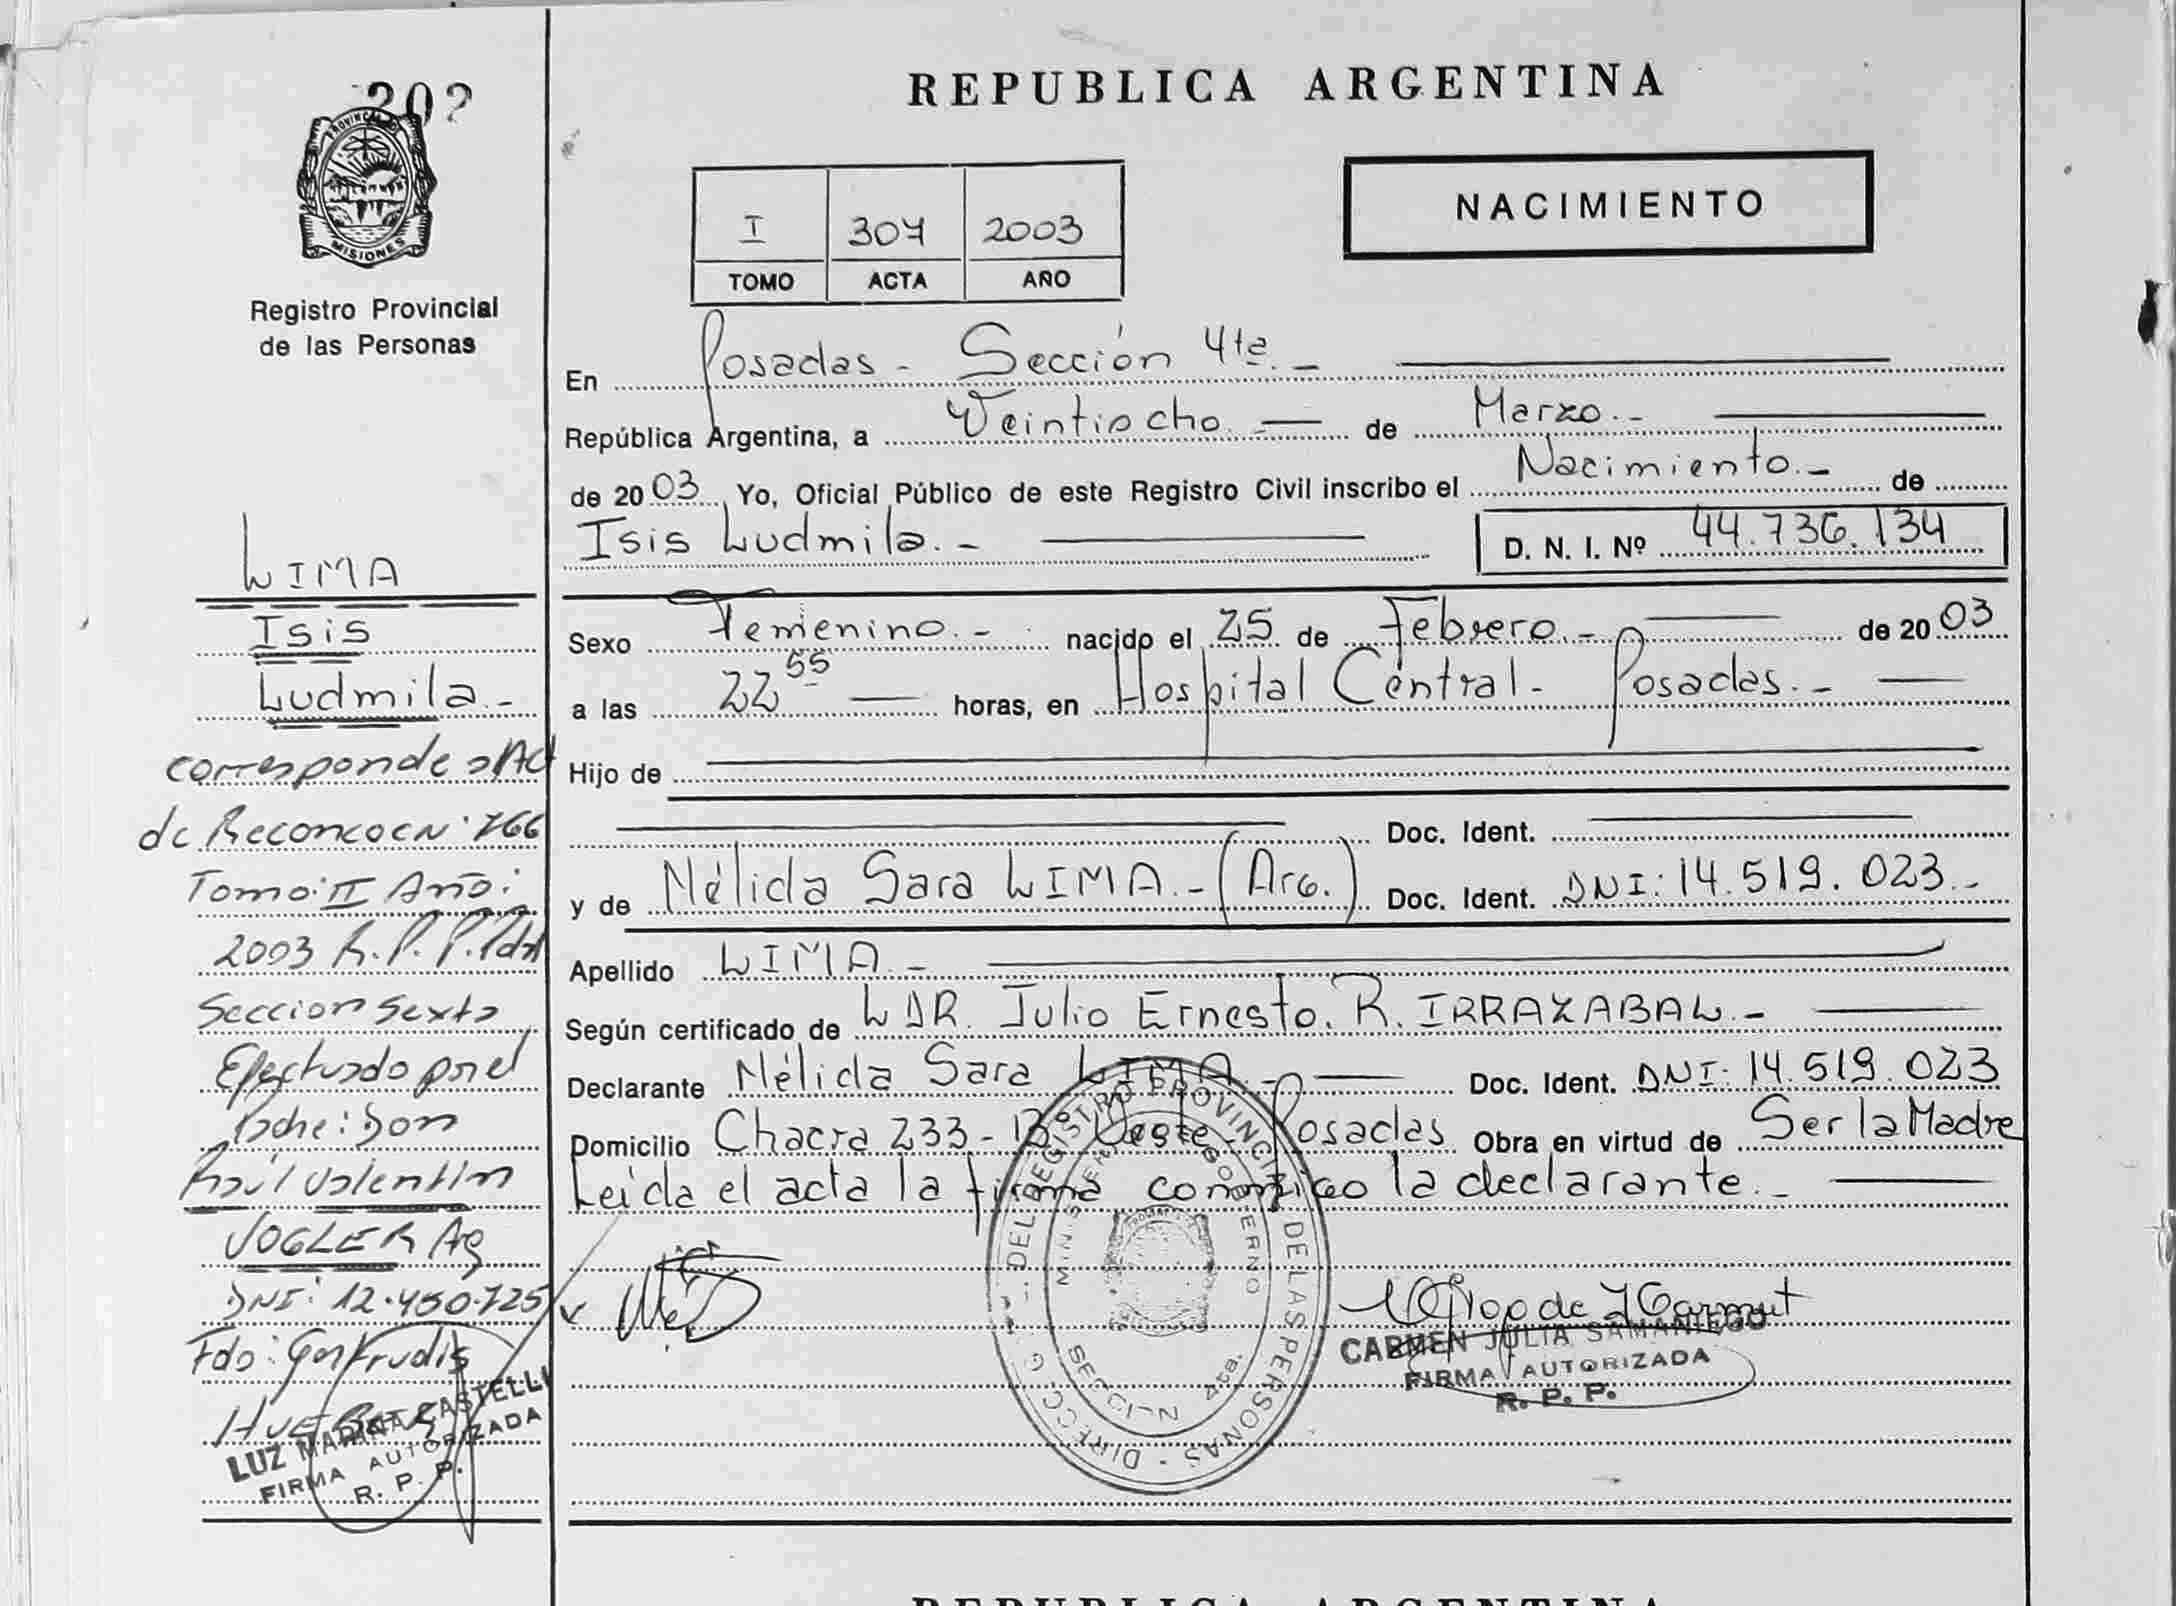 202
PROVINCIA DE
MISIONES
Registro Provincial
de las Personas
REPUBLICA ARGENTINA
I 307 2003
TOMO ACTA AÑO
NACIMIENTO
En Posadas - Sección 4ta. -
República Argentina, a Veintiocho. de Marzo. -
de 2003 Yo, Oficial Público de este Registro Civil inscribo el Nacimiento. - de
Isis Ludmila. -
D. N. I. Nº 44.736.134
Sexo Femenino. - nacido el 25 de Febrero. - de 2003
a las 22 55 horas, en Hospital Central - Posadas. -
Hijo de
Doc. Ident.
y de Nélida Sara LIMA. - (Arg.) Doc. Ident. DNI: 14.519.023. -
Apellido LIMA. -
Según certificado de LDR. Julio Ernesto. R. IRRAZABAL. -
Declarante Nélida Sara LIMA. - Doc. Ident. DNI: 14.519.023
Domicilio Chacra 233 - Bº Oeste - Posadas Obra en virtud de Ser la Madre
Leída el acta la firma conmigo la declarante. -
LIMA
Isis
Ludmila. -
corresponde
de Reconoc Nº 766
Tomo: II Año:
2003 R. P. P.
Seccion Sexta
Efectuado por el
Padre: Don
Raúl Valentin
VOGLER Ag
DNI: 12.450.725
Fdo: Gertrudis
LUZ MARINA CASTELLI
FIRMA AUTORIZADA
R. P. P.
DIRECC. G. DEL REGISTRO PROVINCIAL DE LAS PERSONAS
MINISTERIO GOBIERNO
SECCION 4ta.
CARMEN JULIA SAMANIEGO
FIRMA AUTORIZADA
R. P. P.
REPUBLICA ARGENTINA